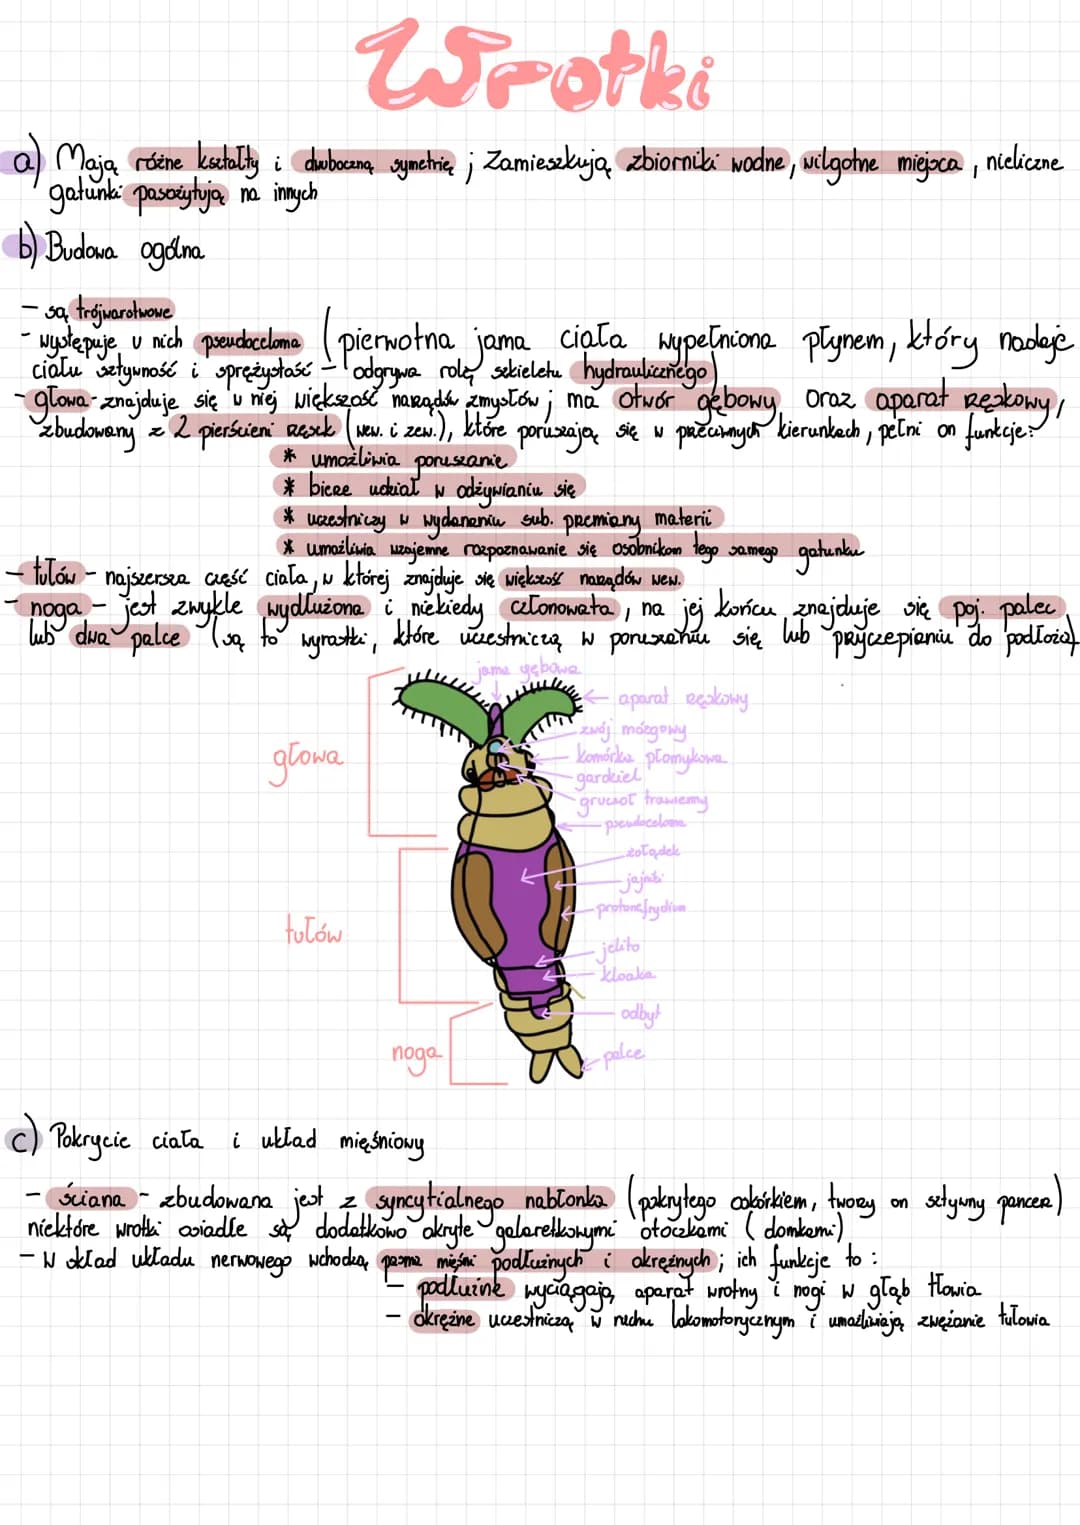 Wrotki
a) Mają różne kształty i dwuboczną symetrię ; Zamieszkują zbiorniki wodne, wilgotne miejsca, nieliczne
gatunki pasożytują na innych
b) Budowa ogólna
- są trójwarstwowe
- występuje u nich pseudoceloma (pierwotna jama ciała wypełniona płynem, który nadaje
ciału sztywność i sprężystość - odgrywa rolę szkieletu hydraulicznego)
- głowa - znajduje się w niej większość narządów zmysłów ; ma otwór gębowy oraz aparat rzęskowy,
zbudowany z 2 pierścieni rzęsek (wew. i zew.), które poruszają się w przeciwnych kierunkach, pełni on funkcje:
* umożliwia poruszanie
* bierze udział w odżywianiu się
* uczestniczy w wydalaniu sub. przemiany materii
* umożliwia wzajemne rozpoznawanie się osobnikom tego samego gatunku
- tułów - najszersza część ciała, w której znajduje się większość narządów wew.
- noga - jest zwykle wydłużona i niekiedy członowata, na jej końcu znajduje się poj. palec
lub dwa palce (są to wyrostki, które uczestniczą w poruszaniu się lub przyczepianiu do podłoża)
jama gębowa
aparat rzęskowy
zwój mózgowy
głowa
komórka płomykowa
gardziel
gruczoł trawienny
pseudoceloma
żołądek
jajniki
protonefrydium
tułów
jelito
kloaka
odbyt
noga
palce
c) Pokrycie ciała i układ mięśniowy
- ściana - zbudowana jest z syncytialnego nabłonka (pokrytego oskórkiem, tworzy on sztywny pancerz)
niektóre wrotki osiadłe są dodatkowo okryte galaretkowymi otoczkami (domkami)
- W skład układu nerwowego wchodzą pasma mięśni podłużnych i okrężnych ; ich funkcje to :
- podłużne wyciągają aparat wrotny i nogi w głąb tłowia
- okrężne uczestniczą w ruchu lokomotorycznym i umożliwiają zwężanie tułowia